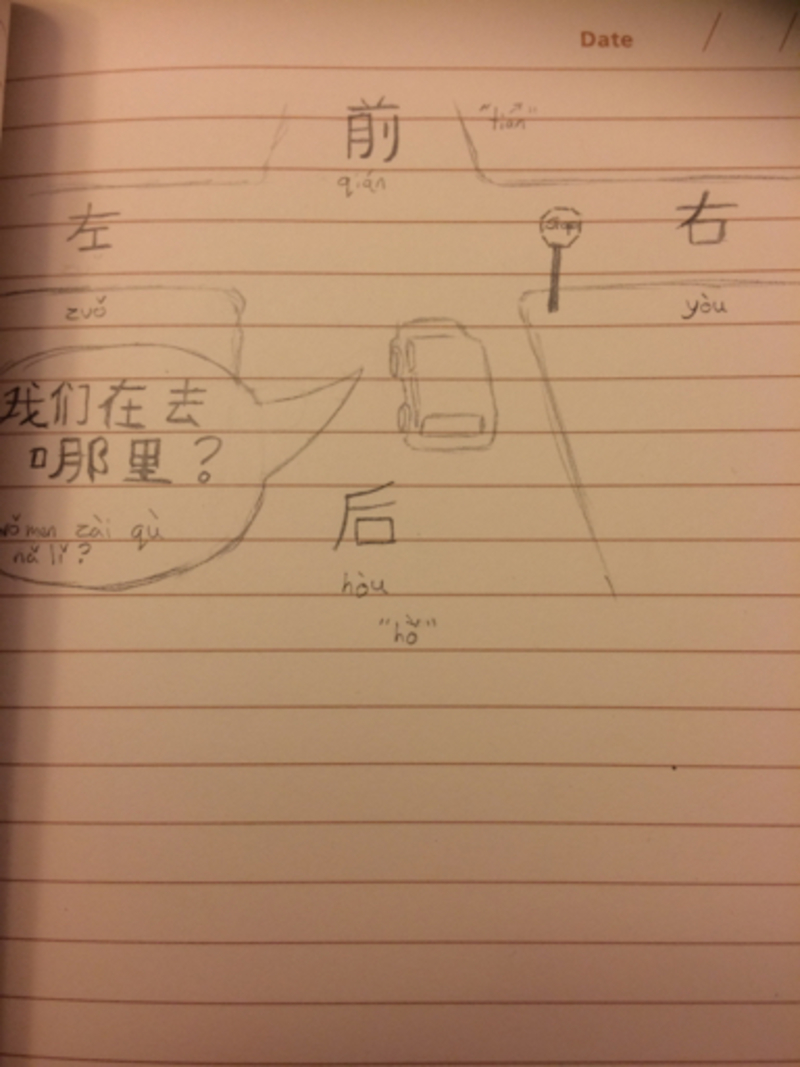 Date / /
前 "tián"
qián
左
Stop
右
zuǒ
yòu
我们在去
哪里？
wǒ men zài qù
nǎ lǐ?
后
hòu
"hò"